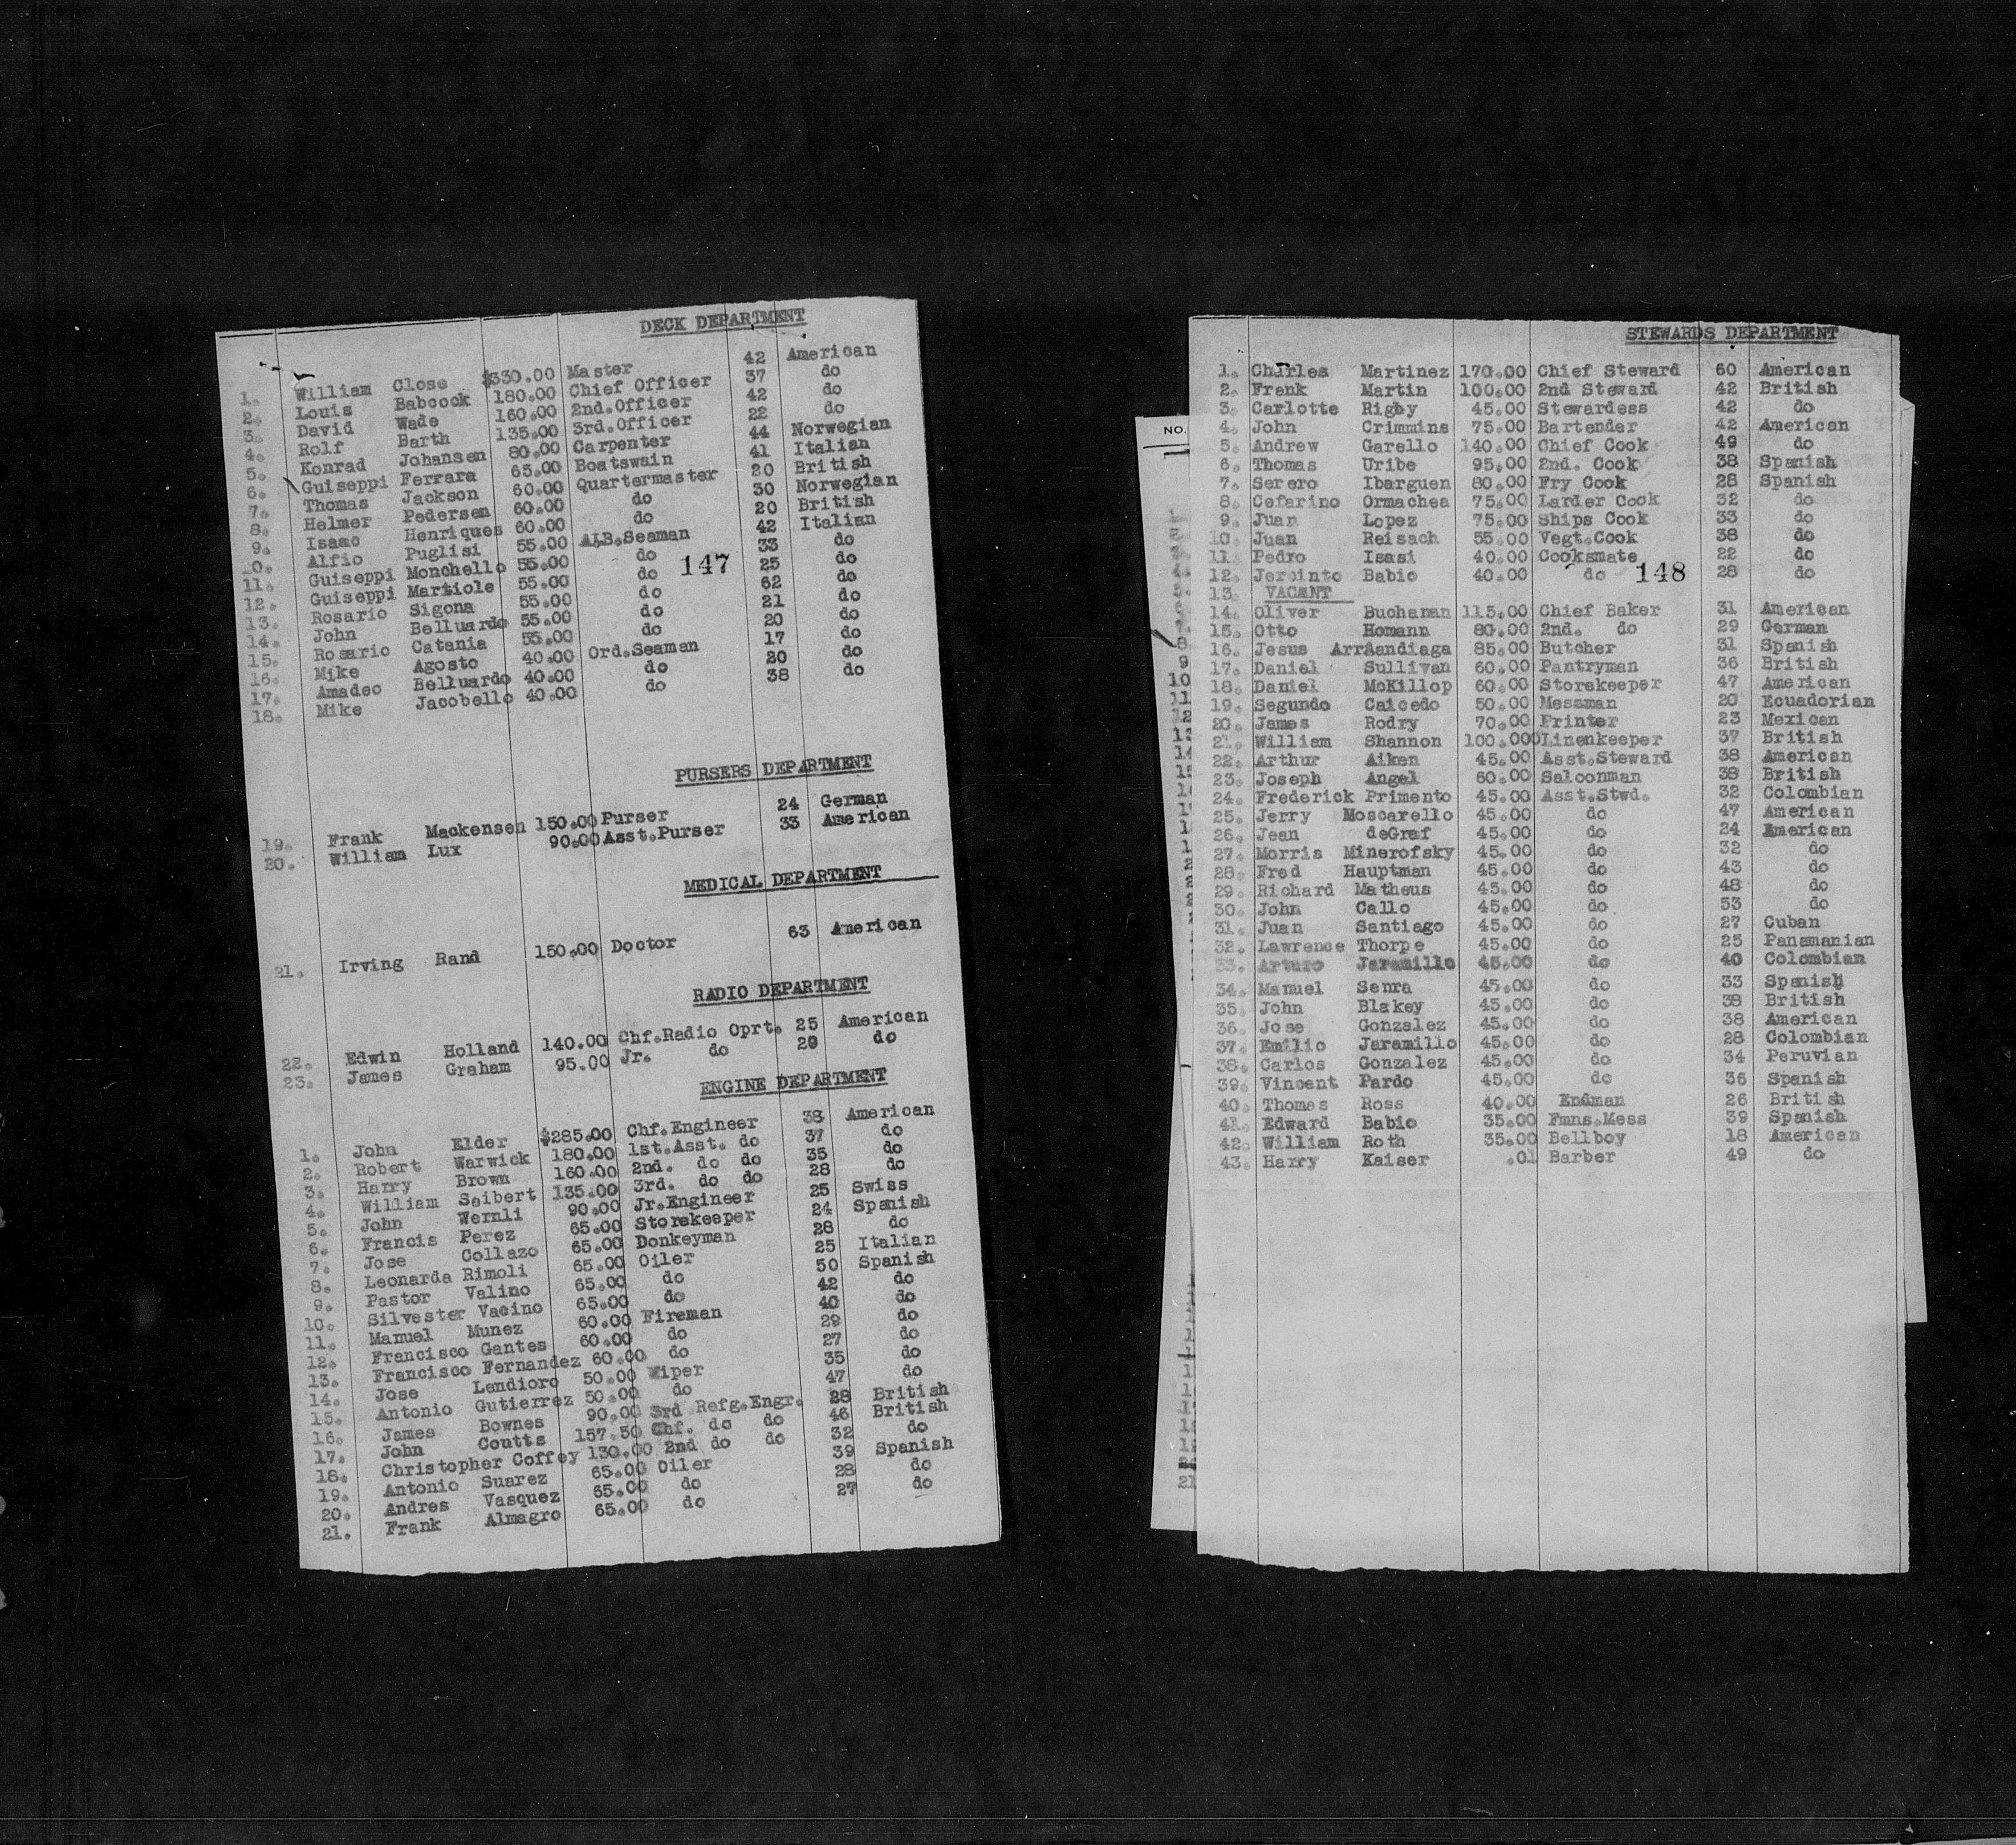 DECK DEPARTMENT
1. William Close $330.00 Master 42 American
2. Louis Babcock 180.00 Chief Officer 37 do
3. David Wade 160.00 2nd.Officer 42 do
4. Rolf Barth 135.00 3rd.Officer 22 do
5. Konrad Johansen 80.00 Carpenter 44 Norwegian
6. Guiseppi Ferrara 65.00 Boatswain 41 Italian
7. Thomas Jackson 60.00 Quartermaster 20 British
8. Helmer Pedersen 60.00 do 30 Norwegian
9. Isaac Henriques 60.00 do 20 British
10. Alfio Puglisi 55.00 A.B.Seaman 42 Italian
11. Guiseppi Monchello 55.00 do 33 do
147
12. Guiseppi Martiole 55.00 do 25 do
13. Rosario Sigona 55.00 do 62 do
14. John Belluardo 55.00 do 21 do
15. Rosario Catania 55.00 do 20 do
16. Mike Agosto 40.00 Ord.Seaman 17 do
17. Amadeo Belluardo 40.00 do 20 do
18. Mike Jacobello 40.00 do 38 do
PURSERS DEPARTMENT
19. Frank Mackensen 150.00 Purser 24 German
20. William Lux 90.00 Asst.Purser 33 American
MEDICAL DEPARTMENT
21. Irving Rand 150.00 Doctor 63 American
RADIO DEPARTMENT
22. Edwin Holland 140.00 Chf.Radio Oprt. 25 American
23. James Graham 95.00 Jr. do 29 do
ENGINE DEPARTMENT
1. John Elder $285.00 Chf.Engineer 38 American
2. Robert Warwick 180.00 1st.Asst. do 37 do
3. Harry Brown 160.00 2nd. do do 35 do
4. William Seibert 135.00 3rd. do do 28 do
5. John Wernli 90.00 Jr.Engineer 25 Swiss
6. Francis Perez 65.00 Storekeeper 24 Spanish
7. Jose Collazo 65.00 Donkeyman 28 do
8. Leonarda Rimoli 65.00 Oiler 25 Italian
9. Pastor Valino 65.00 do 50 Spanish
10. Silvester Vacino 65.00 do 42 do
11. Manuel Munez 60.00 Fireman 40 do
12. Francisco Gantes 60.00 do 29 do
13. Francisco Fernandez 60.00 do 27 do
14. Jose Lendioro 50.00 Wiper 35 do
15. Antonio Gutierrez 50.00 do 47 do
16. James Bownes 90.00 3rd Refg.Engr. 28 British
17. John Coutts 157.50 Chf. do do 46 British
18. Christopher Coffey 130.00 2nd do do 32 do
19. Antonio Suarez 65.00 Oiler 39 Spanish
20. Andres Vasquez 65.00 do 28 do
21. Frank Almagro 65.00 do 27 do
STEWARDS DEPARTMENT
1. Charles Martinez 170.00 Chief Steward 60 American
2. Frank Martin 100.00 2nd Steward 42 British
3. Carlotte Rigby 45.00 Stewardess 42 do
4. John Crimmins 75.00 Bartender 42 American
5. Andrew Garello 140.00 Chief Cook 49 do
6. Thomas Uribe 95.00 2nd. Cook 38 Spanish
7. Serero Ibarguen 80.00 Fry Cook 28 Spanish
8. Cefarino Ormachea 75.00 Larder Cook 32 do
9. Juan Lopez 75.00 Ships Cook 33 do
10. Juan Reisach 55.00 Vegt.Cook 38 do
11. Pedro Isasi 40.00 Cooksmate 22 do
12. Jerointo Babio 40.00 do 28 do
148
13. VACANT
14. Oliver Buchanan 115.00 Chief Baker 31 American
15. Otto Homann 80.00 2nd. do 29 German
16. Jesus Arrandiaga 85.00 Butcher 31 Spanish
17. Daniel Sullivan 60.00 Pantryman 36 British
18. Daniel McKillop 60.00 Storekeeper 47 American
19. Segundo Caicedo 50.00 Messman 20 Ecuadorian
20. James Rodry 70.00 Printer 23 Mexican
21. William Shannon 100.00 Linenkeeper 37 British
22. Arthur Aiken 45.00 Asst.Steward 38 American
23. Joseph Angel 60.00 Saloonman 38 British
24. Frederick Primento 45.00 Asst.Stwd. 32 Colombian
25. Jerry Moscarello 45.00 do 47 American
26. Jean deGraf 45.00 do 24 American
27. Morris Minerofsky 45.00 do 32 do
28. Fred Hauptman 45.00 do 43 do
29. Richard Matheus 45.00 do 48 do
30. John Callo 45.00 do 53 do
31. Juan Santiago 45.00 do 27 Cuban
32. Lawrence Thorpe 45.00 do 25 Panamanian
33. Arturo Jaramillo 45.00 do 40 Colombian
34. Manuel Senra 45.00 do 33 Spanish
35. John Blakey 45.00 do 38 British
36. Jose Gonzalez 45.00 do 38 American
37. Emilio Jaramillo 45.00 do 28 Colombian
38. Carlos Gonzalez 45.00 do 34 Peruvian
39. Vincent Pardo 45.00 do 36 Spanish
40. Thomas Ross 40.00 Endman 26 British
41. Edward Babio 35.00 Fmns.Mess 39 Spanish
42. William Roth 35.00 Bellboy 18 American
43. Harry Kaiser .01 Barber 49 do
NO.